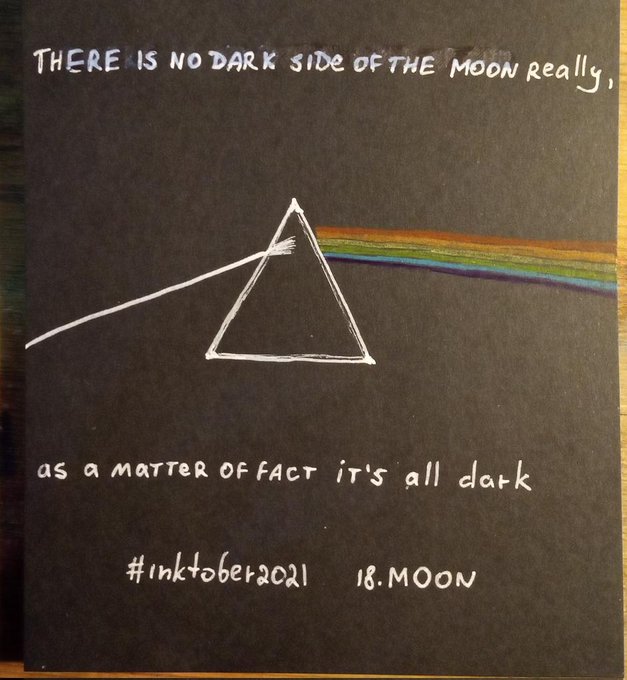 THERE IS NO DARK SIDE OF THE MOON Really,
as a MATTER OF FACT iT'S all dark
#inktober2021 18.MOON